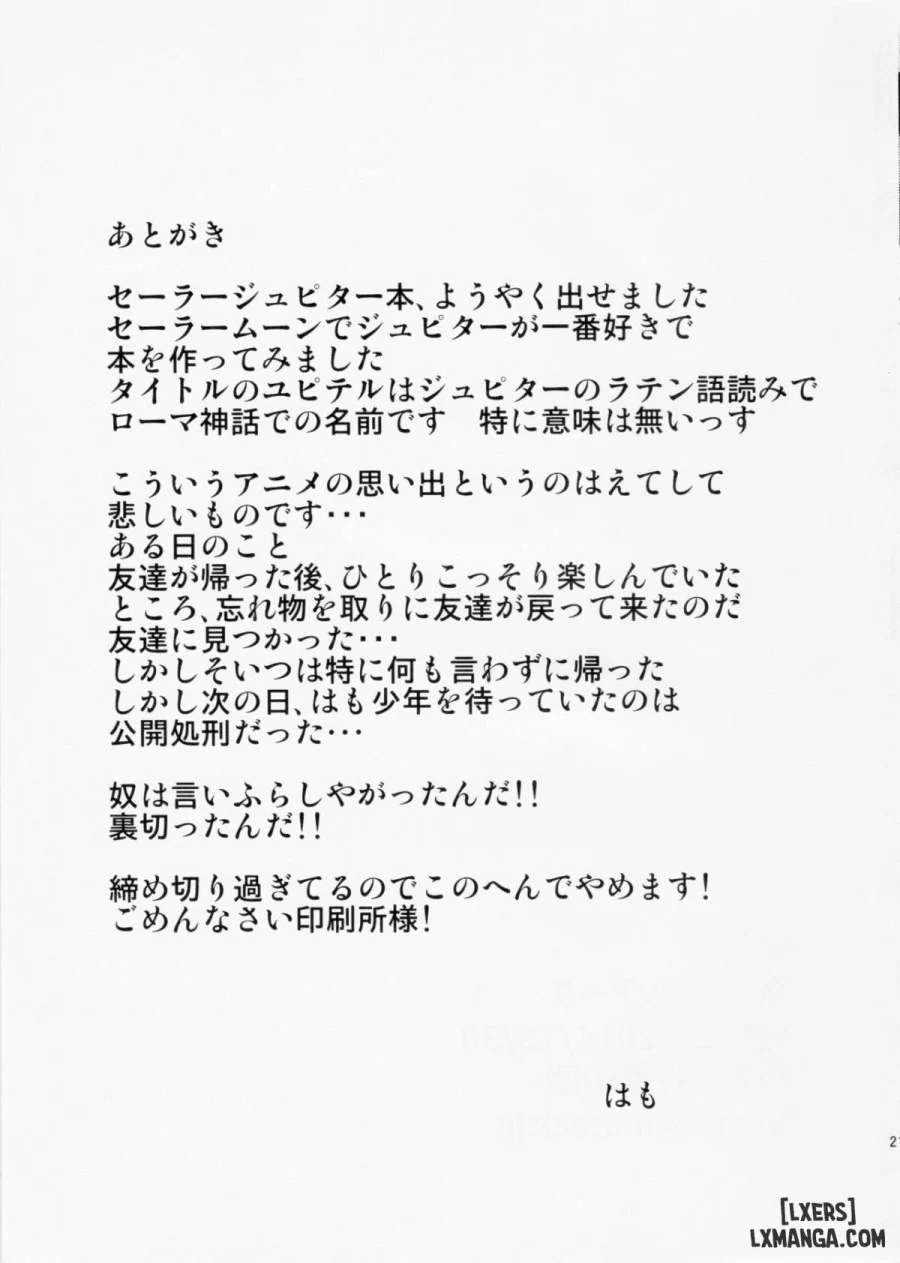 あとがき
セーラージュピター本、ようやく出せました
セーラームーンでジュピターが一番好きで
本を作ってみました
タイトルのユピテルはジュピターのラテン語読みで
ローマ神話での名前です　特に意味は無いっす
こういうアニメの思い出というのはえてして
悲しいものです・・・
ある日のこと
友達が帰った後、ひとりこっそり楽しんでいた
ところ、忘れ物を取りに友達が戻って来たのだ
友達に見つかった・・・
しかしそいつは特に何も言わずに帰った
しかし次の日、はも少年を待っていたのは
公開処刑だった・・・
奴は言いふらしやがったんだ!!
裏切ったんだ!!
締め切り過ぎてるのでこのへんでやめます!
ごめんなさい印刷所様!
はも
2014/12/30
[LXERS]
LXMANGA.COM